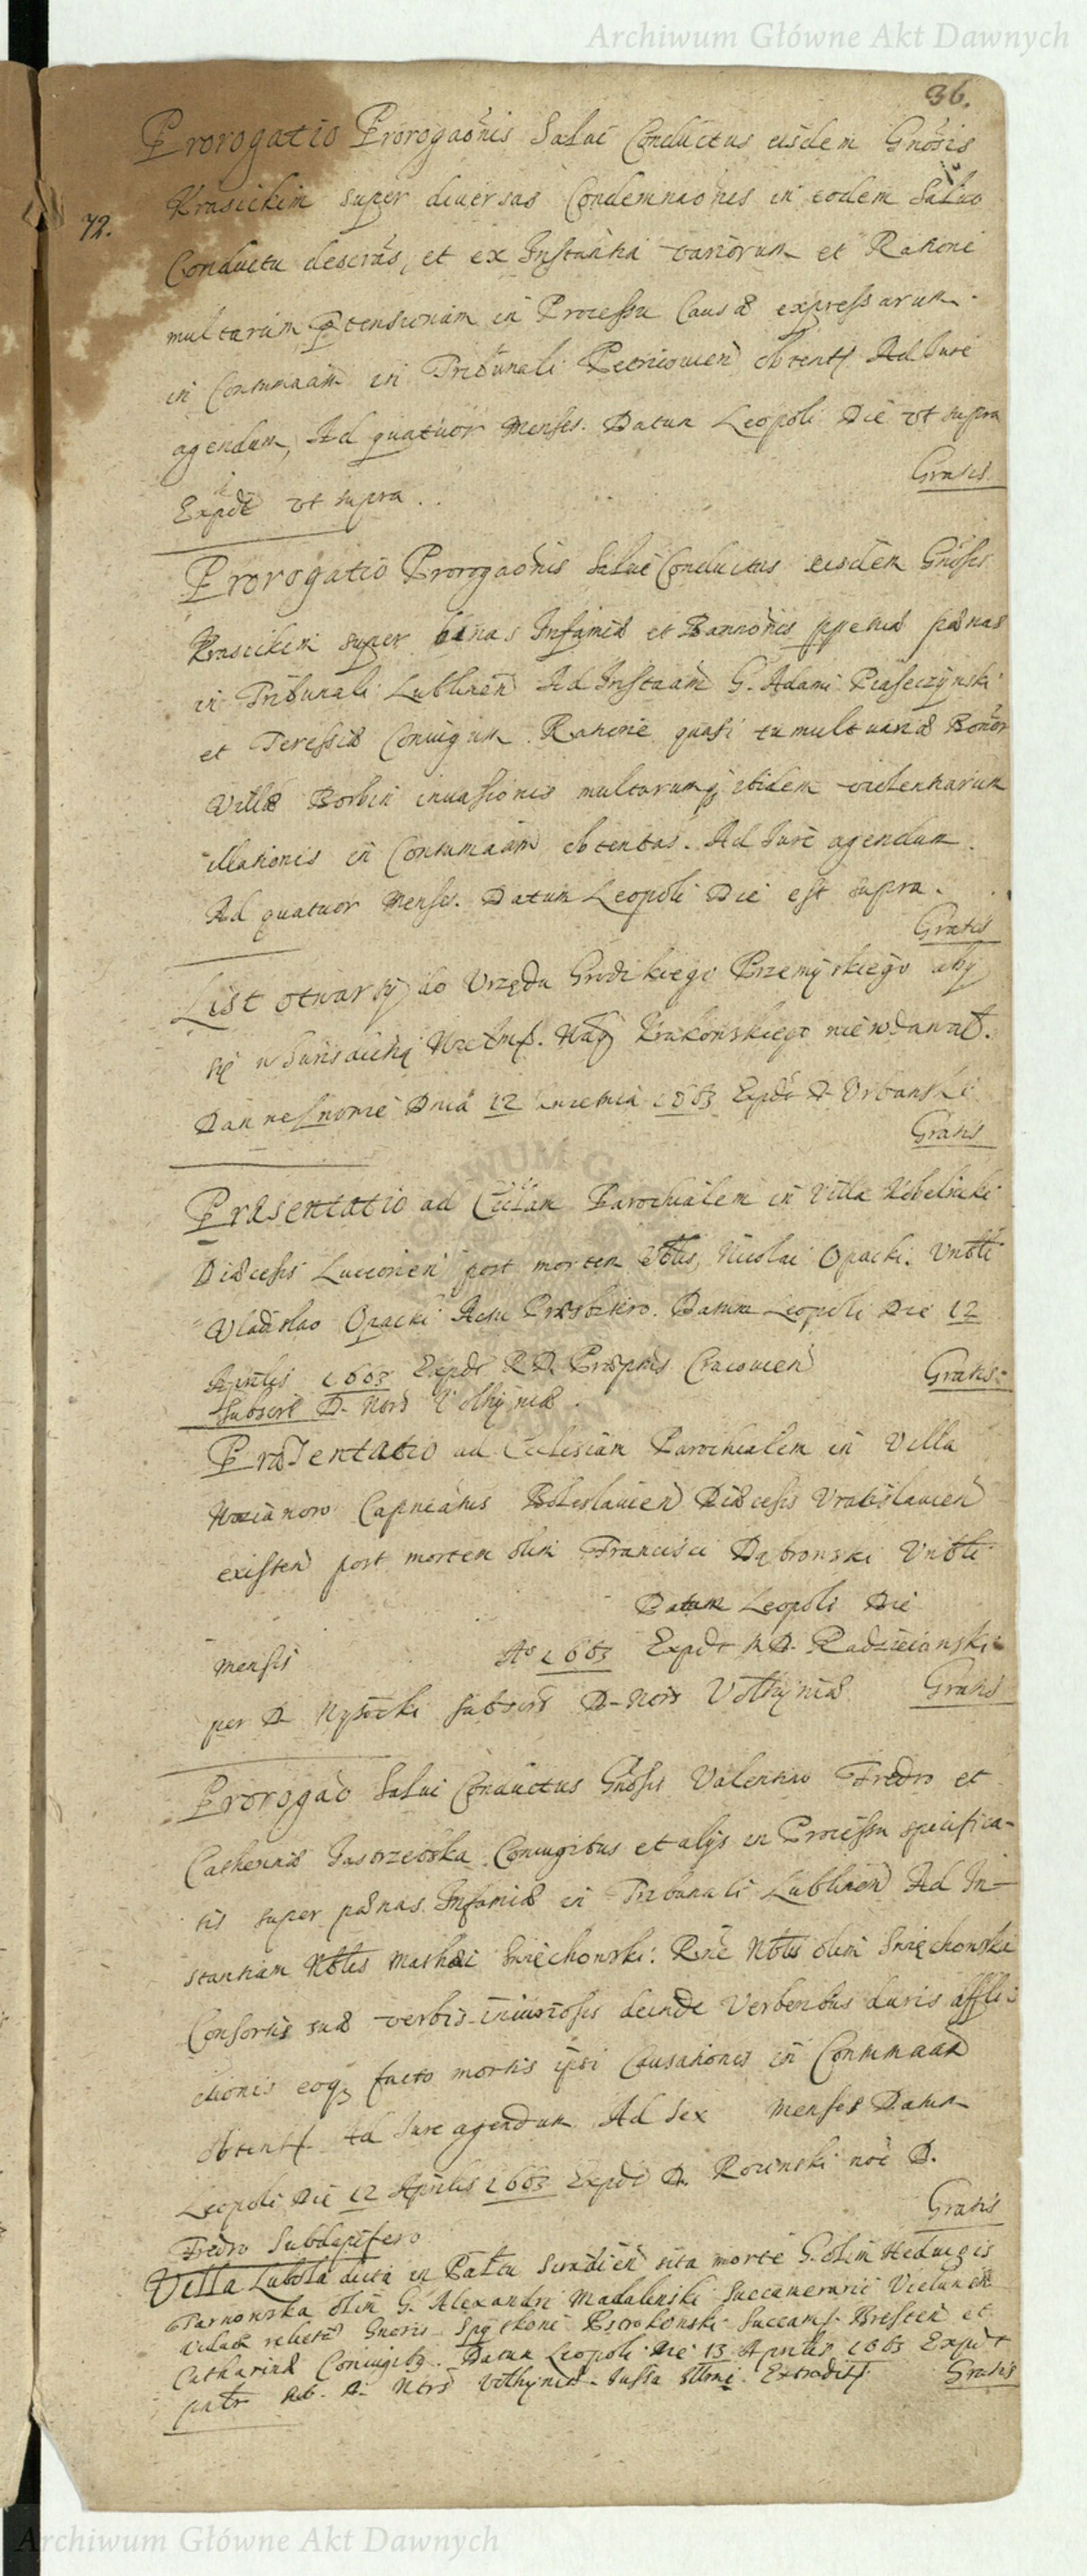 Archiwum Główne Akt Dawnych
36.
Prorogatio Prorogaõnis Salui Conductus eisdem Gnosis
Krasickim super diuersas Condemnaones in eodem Saluo
72.
Conductu descras, et ex Instantia variorum et Ratione
multarum Ptensionum in Processu Causæ expressarum.
in Contumaam in Tribunali Petricouien obtent. Ad Jure
agendum, Ad quatuor Menses. Datum Leopoli Die vt supra
Gratis
Expdt vt supra.
Prorogatio Prorogaõnis Salui Conductus eisdem Gnosis
Krasickim super binas Infamiæ et Bannonis ppetuæ pænas
in Tribunali Lublinen Ad Instaam G. Adami Piaseczynski
et Teressiæ Coniugum Ratione quasi tumultuariæ Bonor
Villæ Borbin inuasionis multarumq ibidem violentiarum
illationis in Contumaam obtentas. Ad Jure agendum.
Ad quatuor Menses. Datum Leopoli Die vt supra.
Gratis
List otwarty do Vrzędu Grodzkiego Przemyskiego aby
się w Jurisdictią Krakowskiego niewdawał.
Dan we Lwowie Dnia 12 kwietnia 1663 Expdt D. Vrbanski
Gratis
Præsentatio ad Ecclam Parochialem in Villa
Diæcesis Luceorien post mortem Nicolai Opacki. Vnbli
Vladislao Opacki Actu Præsbitero. Datum Leopoli Die 12
Aprilis 1663 Expdt R. D. Præptus Cracouien
Gratis
Subscrs D. Nors Volhyniæ.
Præsentatio ad Ecclesiam Parochialem in Villa
Capneatus Boleslauien Diæcesis Vratislauien
existen post mortem olim Francisci Dąbrowski Vnbli
Datum Leopoli Die
mensis Ao 1663 Expdt M. D. Radzieiowski
per D. Wysocki subscrs D. Nors Volhyniæ
Gratis
Prorogao Salui Conductus Gnosis Valentino Fredro et
Catherinæ Jastrzebska Coniugibus et alys in Processu specifica-
tis super pænas Infamiæ in Tribunali Lublinen Ad In-
stantiam Nblis Mathæi Swięchowski: Rne Nblis olim Swięchowska
Consortis suæ verbis iniuriosis deinde Verberibus duris affli-
ctionis eoq facto mortis ipsi Causationis in Contumaam
obtent Ad Jure agendum Ad Sex Menses Datum
Leopoli Die 12 Aprilis 1663 Expdt D. Rosinski noe D.
Gratis
Fredro Subdapifero
Villa Lubola dicta in Paltu Siradien sita morte G. olim Heduigis
Tarnowska olim G. Alexandri Madalinski Succamerarii Vielunen
Viduæ relictæ Gneris Spytkoni Pstrokonski Succam. Bresten et
Catharinæ Coniugibq. Datum Leopoli Die 13 Aprilis 1663 Expdt
Volhyniæ. Jussa Illmi Extradit.
Gratis
Archiwum Główne Akt Dawnych